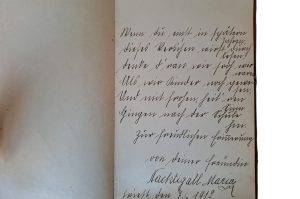 Wenn du einst in spätern
Jahren
dieses Verslein wirst durch
lesen
denke d'ran, wie froh wir
waren
Als wir Kinder noch gewe
sen,
Und mit frohen, heitern
Sinn
Gingen nach der Schule
hin.
Zur freundlichen Erinnerung
von deiner Freundin
Nachtigall Maria
1912